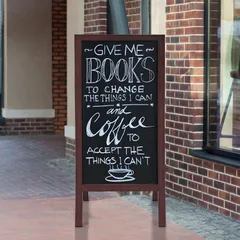 ~ GIVE ME ~
BOOKS
TO CHANGE
THE THINGS I CAN
and
Coffee
TO
ACCEPT THE
THINGS I CAN'T